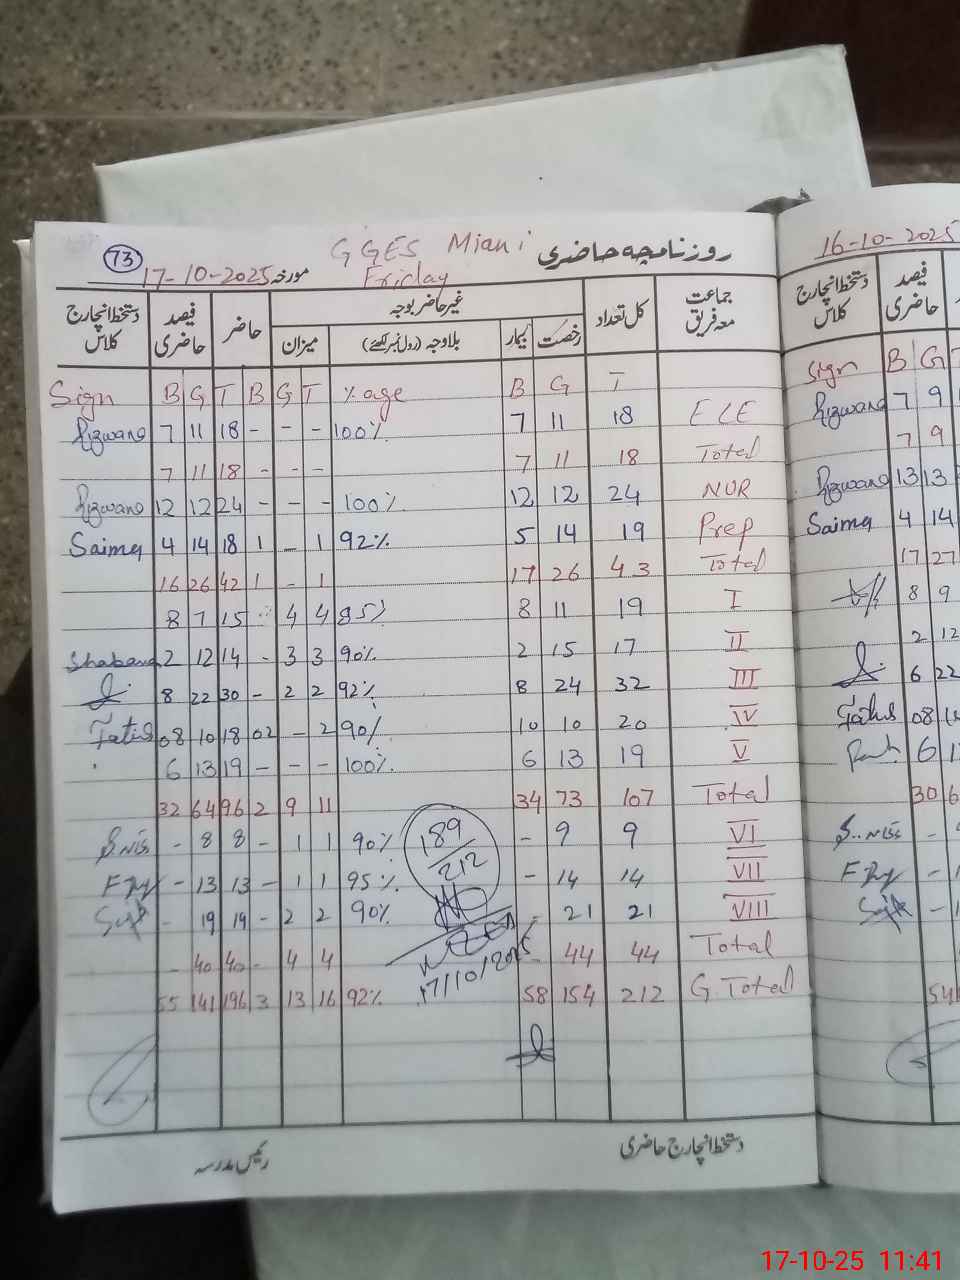 73
GGES Miani روزنامچہ حاضری
17-10-2025 مورخہ Friday
دستخط انچارج کلاس فیصد حاضری حاضر غیر حاضر بوجہ کل تعداد جماعت معہ فریق
میزان بلاوجہ (رول نمبر لکھئے) بیمار رخصت
Sign B G T B G T %age B G T
Rizwana 7 11 18 - - - 100% 7 11 18 ECE
7 11 18 - - - 7 11 18 Total
Rizwana 12 12 24 - - - 100% 12 12 24 NUR
Saima 4 14 18 1 - 1 92% 5 14 19 Prep
16 26 42 1 - 1 17 26 43 Total
8 7 15 4 4 85% 8 11 19 I
Shabana 2 12 14 - 3 3 90% 2 15 17 II
8 22 30 - 2 2 92% 8 24 32 III
08 10 18 02 - 2 90% 10 10 20 IV
6 13 19 - - - 100% 6 13 19 V
32 64 96 2 9 11 34 73 107 Total
S.Niss - 8 8 - 1 1 90% - 9 9 VI
- 13 13 - 1 1 95% - 14 14 VII
- 19 19 - 2 2 90% - 21 21 VIII
- 40 40 - 4 4 - 44 44 Total
55 141 196 3 13 16 92% 58 154 212 G.Total
189
212
17/10/2025
رئیس مدرسہ دستخط انچارج حاضری
16-10-2025
دستخط انچارج کلاس فیصد حاضری
Sign B G T
Rizwana 7 9
7 9
Rizwana 13 13
Saima 4 14
17 27
8 9
2 12
6 22
08
6
30 6
S.Niss -
-
-
17-10-25 11:41